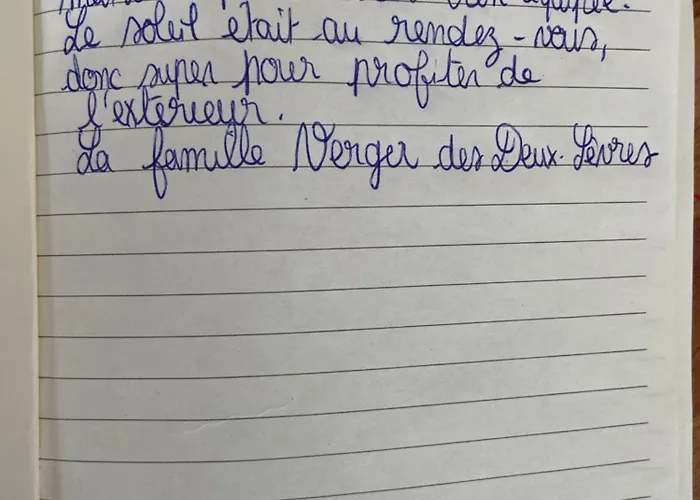 Le soleil était au rendez-vous,
donc super pour profiter de
l'extérieur.
La famille Verger des Deux-Sèvres